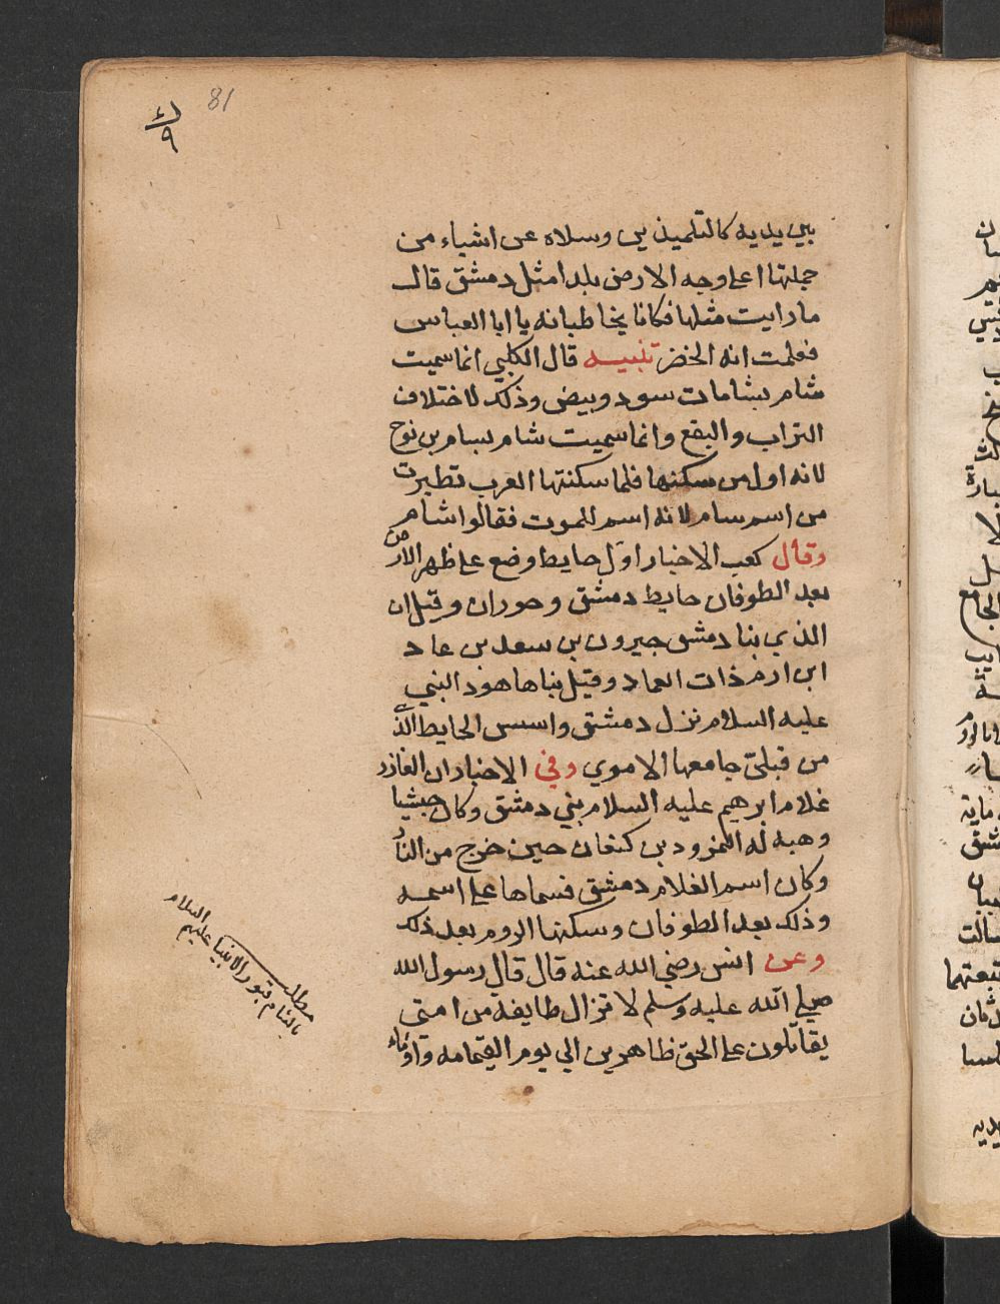 81
٩
بين يديه كالتلميذين وسلاه عن اشياء من
جملتها اعلى وجه الارض بلدا مثل دمشق قال
ما رايت مثلها فكانا يخاطبانه يا ابا العباس
فعلمت انه الخضر تنبيه قال الكلبي انما سميت
شام بشامات سود وبيض وذلك لاختلاف
التراب والبقع وانما سميت شام بسام بن نوح
لانه اول من سكنها فلما سكنتها العرب تطيرت
من اسم سام لانه اسم للموت فقالوا شام
وقال كعب الاخبار اول حايط وضع على ظهر الارض
بعد الطوفان حايط دمشق وحوران وقيل ان
الذي بنا دمشق جيرون بن سعد بن عاد
ابن ارم ذات العماد وقيل بناها هود النبي
عليه السلام نزل دمشق واسس الحايط الذ
من قبلي جامعها الاموي وفي الاخبار ان العازر
غلام ابرهيم عليه السلام بني دمشق وكان حبشيا
وهبه له النمرود بن كنعان حين خرج من النار
وكان اسم الغلام دمشق فسماها على اسمه
وذلك بعد الطوفان وسكنها الروم بعد ذلك
وعن انس رضي الله عنه قال قال رسول الله
صلى الله عليه وسلم لا تزال طايفة من امتى
يقاتلون على الحق ظاهرين الي يوم القيامه
مطلب قبور الانبيا عليهم السلام
بالشام